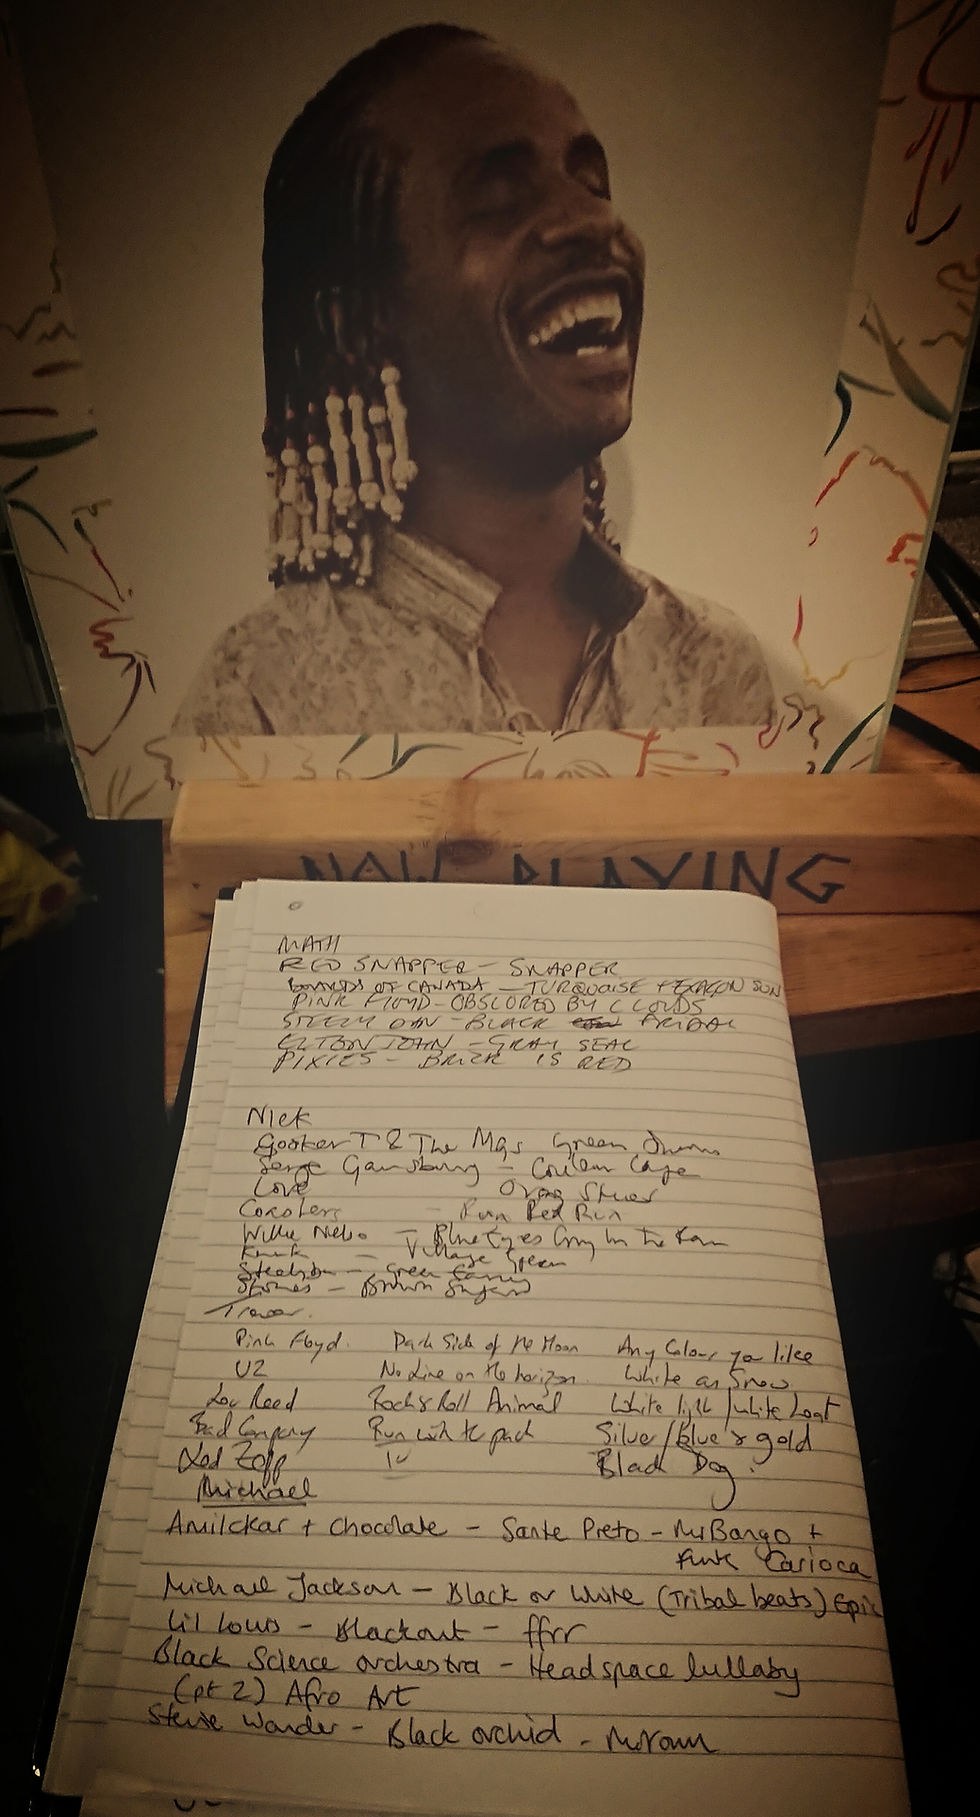 NOW PLAYING
MATH
RED SNAPPER - SNAPPER
BOARDS OF CANADA - TURQUOISE HEXAGON SUN
PINK FLOYD - OBSCURED BY CLOUDS
STEELY DAN - BLACK FRIDAY
ELTON JOHN - GRAY SEAL
PIXIES - BRICK IS RED
Nick
Booker T & The Mgs Green Onions
Serge Gainsbourg - Couleur Cafe
Love Orange Skies
Coasters - Run Red Run
Willie Nelso - Blue Eyes Cryng In The Rain
Kinks - Village Green
Steeleye - Green
Stones - Brown Sugar
Trevor.
Pink Floyd. Dark Side of the Moon Any Colour you like
U2 No Line on the horizon. White as Snow.
Lou Reed Rock & Roll Animal White light / white heat
Bad Company Run with the pack Silver/blue & gold
Led Zepp IV Black Dog.
Michael
Amilckar + Chocolate - Sante Preto - Mr Bongo +
Funk Carioca
Michael Jackson - Black or White (Tribal beats) Epic
Lil Louis - Blackout - ffrr
Black Science orchestra - Headspace lullaby
(pt 2) Afro Art
Stevie Wonder - Black orchid - Motown